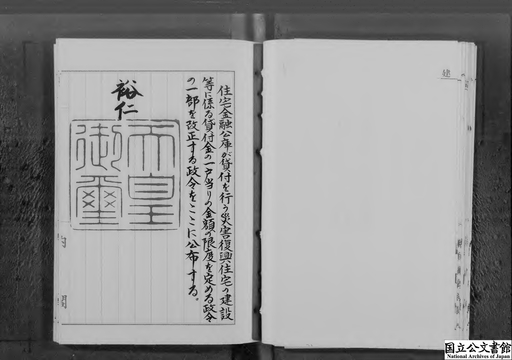 住宅金融公庫が貸付を行う災害復興住宅の建設
等に係る貸付金の一戸当りの金額の限度を定める政令
の一部を改正する政令をここに公布する。
裕仁
天皇
御璽
国立公文書館
National Archives of Japan